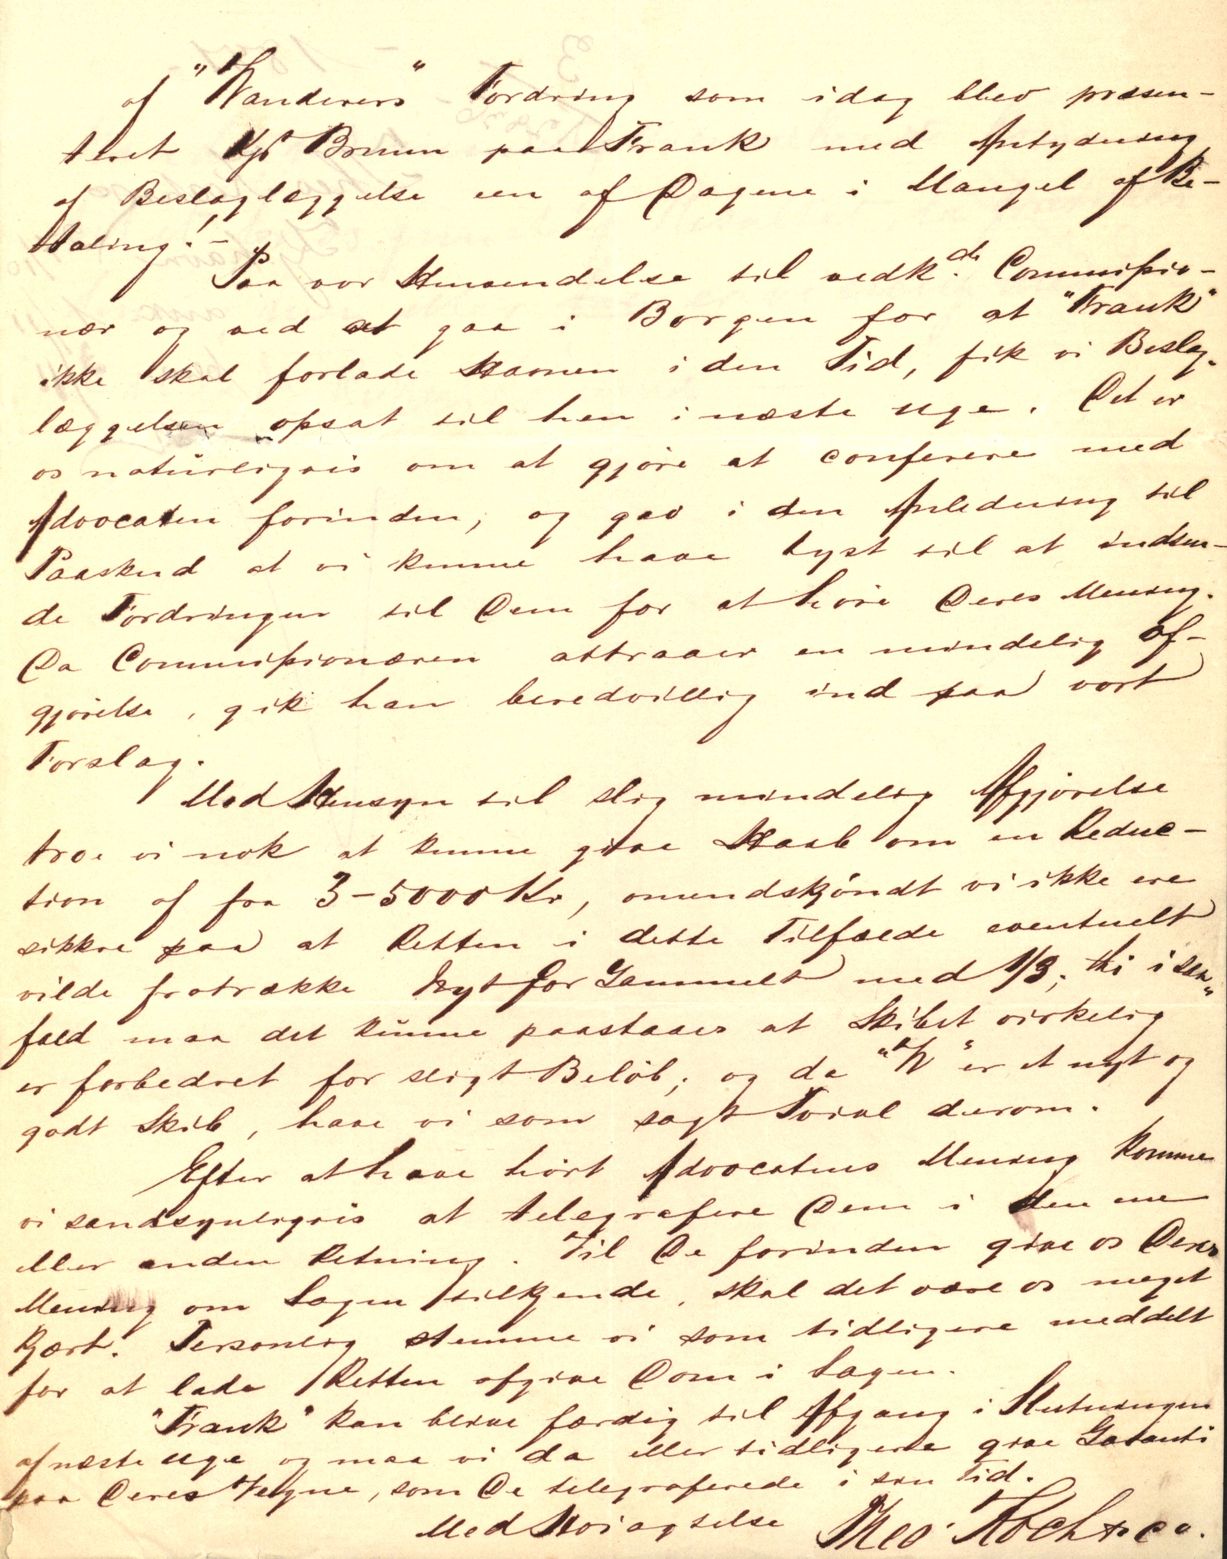 af "Wanderers" Fordring som idag blev præsen-
teret Kpt Bruun paa Frank med Antydning
af Beslaglæggelse een af Dagene i Mangel af Be-
taling!-
Paa vor Henvendelse til vedk.de Commissio-
nær og ved at gaa i Borgen for at "Frank"
ikke skal forlade Havnen i den Tid, fik vi Beslag-
læggelsen opsat til hen i næste Uge. Det er
os naturligvis om at gjøre at conferere med
Advocaten forinden, og gav i den Anledning til
Paaskud at vi kunne have Lyst til at indsen-
de Fordringen til Dem for at høre Deres Mening.
Da Commissionæren attraaer en mindelig Af-
gjørelse, gik han beredvillig ind paa vort
Forslag.
Med Hensyn til slig mindelig Afgjørelse
troe vi nok at kunne give Haab om en Reduc-
tion af fra 3-5000 Kr, omendskjøndt vi ikke ere
sikkre paa at Retten i dette Tilfælde eventuelt
vilde fratrække Nyt for Gammelt med 1/3; thi i saa
fald maa det kunne paastaaes at Skibet virkelig
er forbedret for sligt Beløb; og da "W" er et nyt og
godt Skib, have vi som sagt Tvivl derom.
Efter at have hørt Advocatens Mening komme
vi sandsynligvis at telegrafere Dem i den ene
eller anden Retning. Vil De forinden give os Deres
Mening om Sagen tilkjende, skal det være os meget
kjært. Personlig stemme vi som tidligere meddelt
for at lade Retten afgive Dom i Sagen.
"Frank" kan blive færdig til Afgang i Slutningen
af næste Uge og maa vi da eller tidligere give Garanti
paa Deres Vegne, som De telegraferede i sin Tid.
Med Høiagtelse Theo Koch & Co.